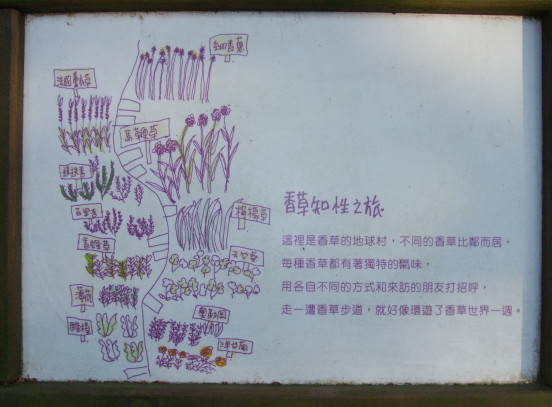 細香蔥
馬鞭草
百里香
檸檬草
香蜂草
薄荷
奧勒岡
洋甘菊
香草知性之旅
這裡是香草的地球村，不同的香草比鄰而居，
每種香草都有著獨特的氣味，
用各自不同的方式和來訪的朋友打招呼，
走一遭香草步道，就好像環遊了香草世界一週。